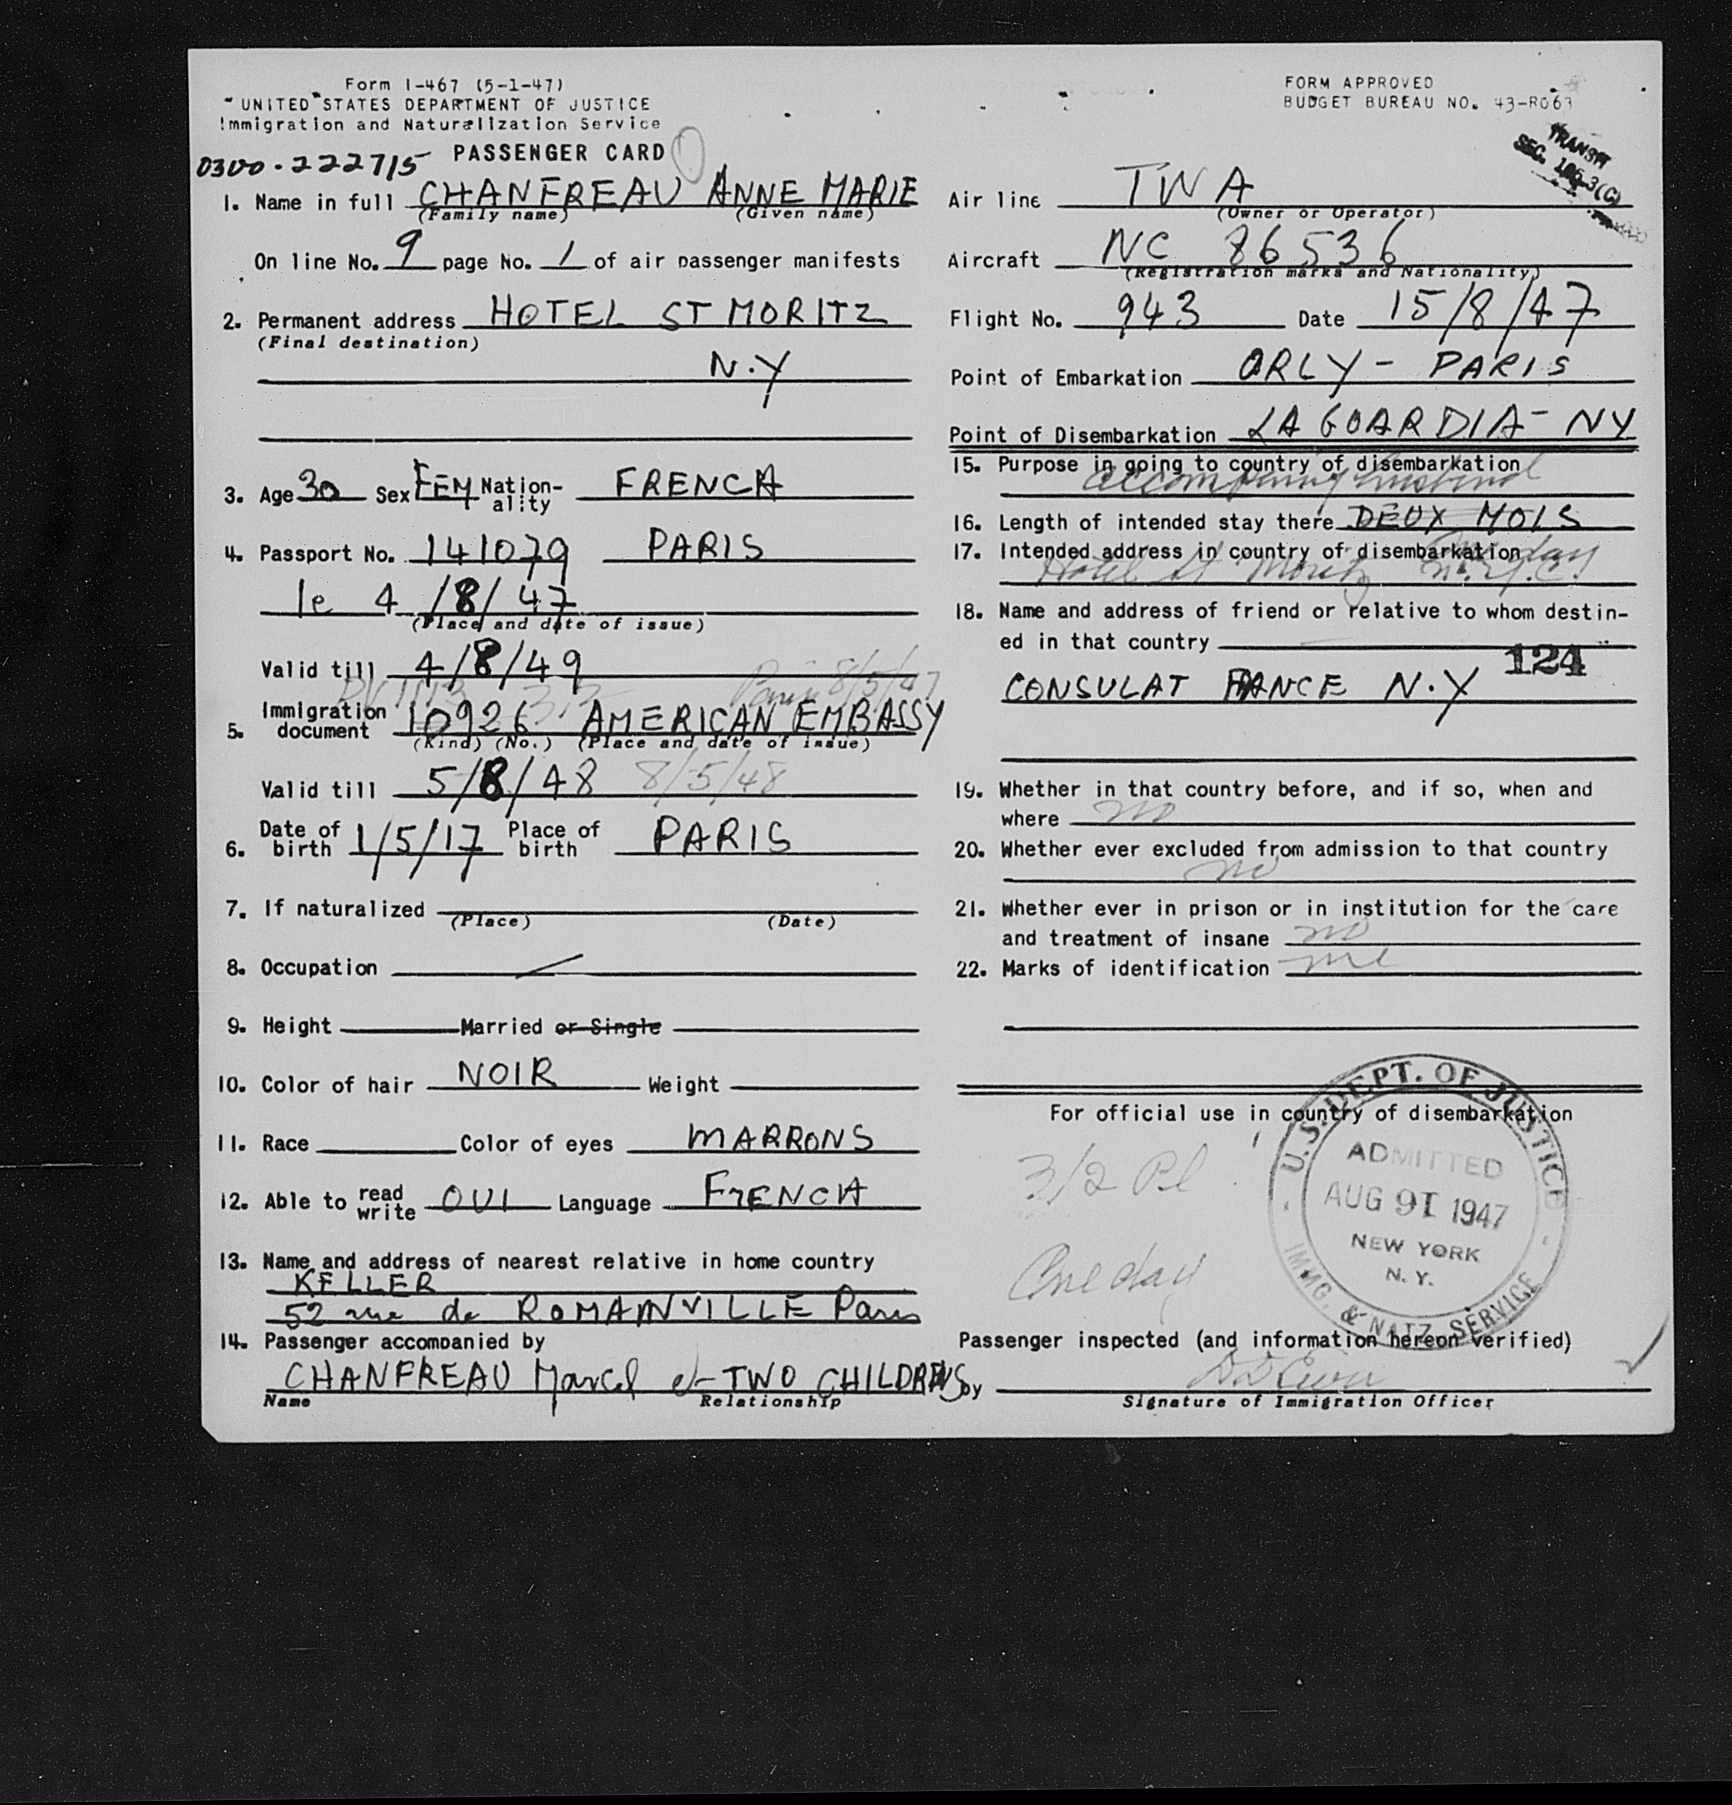 Form I-467 (5-1-47)
UNITED STATES DEPARTMENT OF JUSTICE
Immigration and Naturalization Service
0300-222715 PASSENGER CARD
1. Name in full CHANFREAU ANNE MARIE
(Family name) (Given name)
On line No. 9 page No. 1 of air passenger manifests
2. Permanent address HOTEL ST MORITZ
(Final destination)
N.Y
3. Age 30 Sex FEM Nation-ality FRENCH
4. Passport No. 141079 PARIS
le 4/8/47
(Place and date of issue)
Valid till 4/8/49
Paris 8/5/47
5. Immigration document 10926 AMERICAN EMBASSY
(Kind) (No.) (Place and date of issue)
Valid till 5/8/48 8/5/48
6. Date of birth 1/5/17 Place of birth PARIS
7. If naturalized
(Place) (Date)
8. Occupation
9. Height Married or Single
10. Color of hair NOIR Weight
11. Race Color of eyes MARRONS
12. Able to read write OUI Language FrENCH
13. Name and address of nearest relative in home country
KELLER
52 rue de ROMAINVILLE Paris
14. Passenger accompanied by
CHANFREAU Marcel et TWO CHILDRENS
Name Relationship
FORM APPROVED
BUDGET BUREAU NO. 43-R063
TRANSIT
Air line TWA
(Owner or Operator)
Aircraft NC 86536
(Registration marks and Nationality)
Flight No. 943 Date 15/8/47
Point of Embarkation ORLY - PARIS
Point of Disembarkation LA GUARDIA - NY
15. Purpose in going to country of disembarkation
accompaning husband
16. Length of intended stay there DEUX MOIS
One day
17. Intended address in country of disembarkation
Hotel St Moritz N.Y.C.
18. Name and address of friend or relative to whom destin-
ed in that country
124
CONSULAT FRANCE N.Y
19. Whether in that country before, and if so, when and
where no
20. Whether ever excluded from admission to that country
no
21. Whether ever in prison or in institution for the care
and treatment of insane no
22. Marks of identification
For official use in country of disembarkation
3/2 Pl
One day
U.S. DEPT. OF JUSTICE
ADMITTED
AUG 1947
NEW YORK
N.Y.
IMMG. & NATZ. SERVICE
Passenger inspected (and information hereon verified)
by
Signature of Immigration Officer